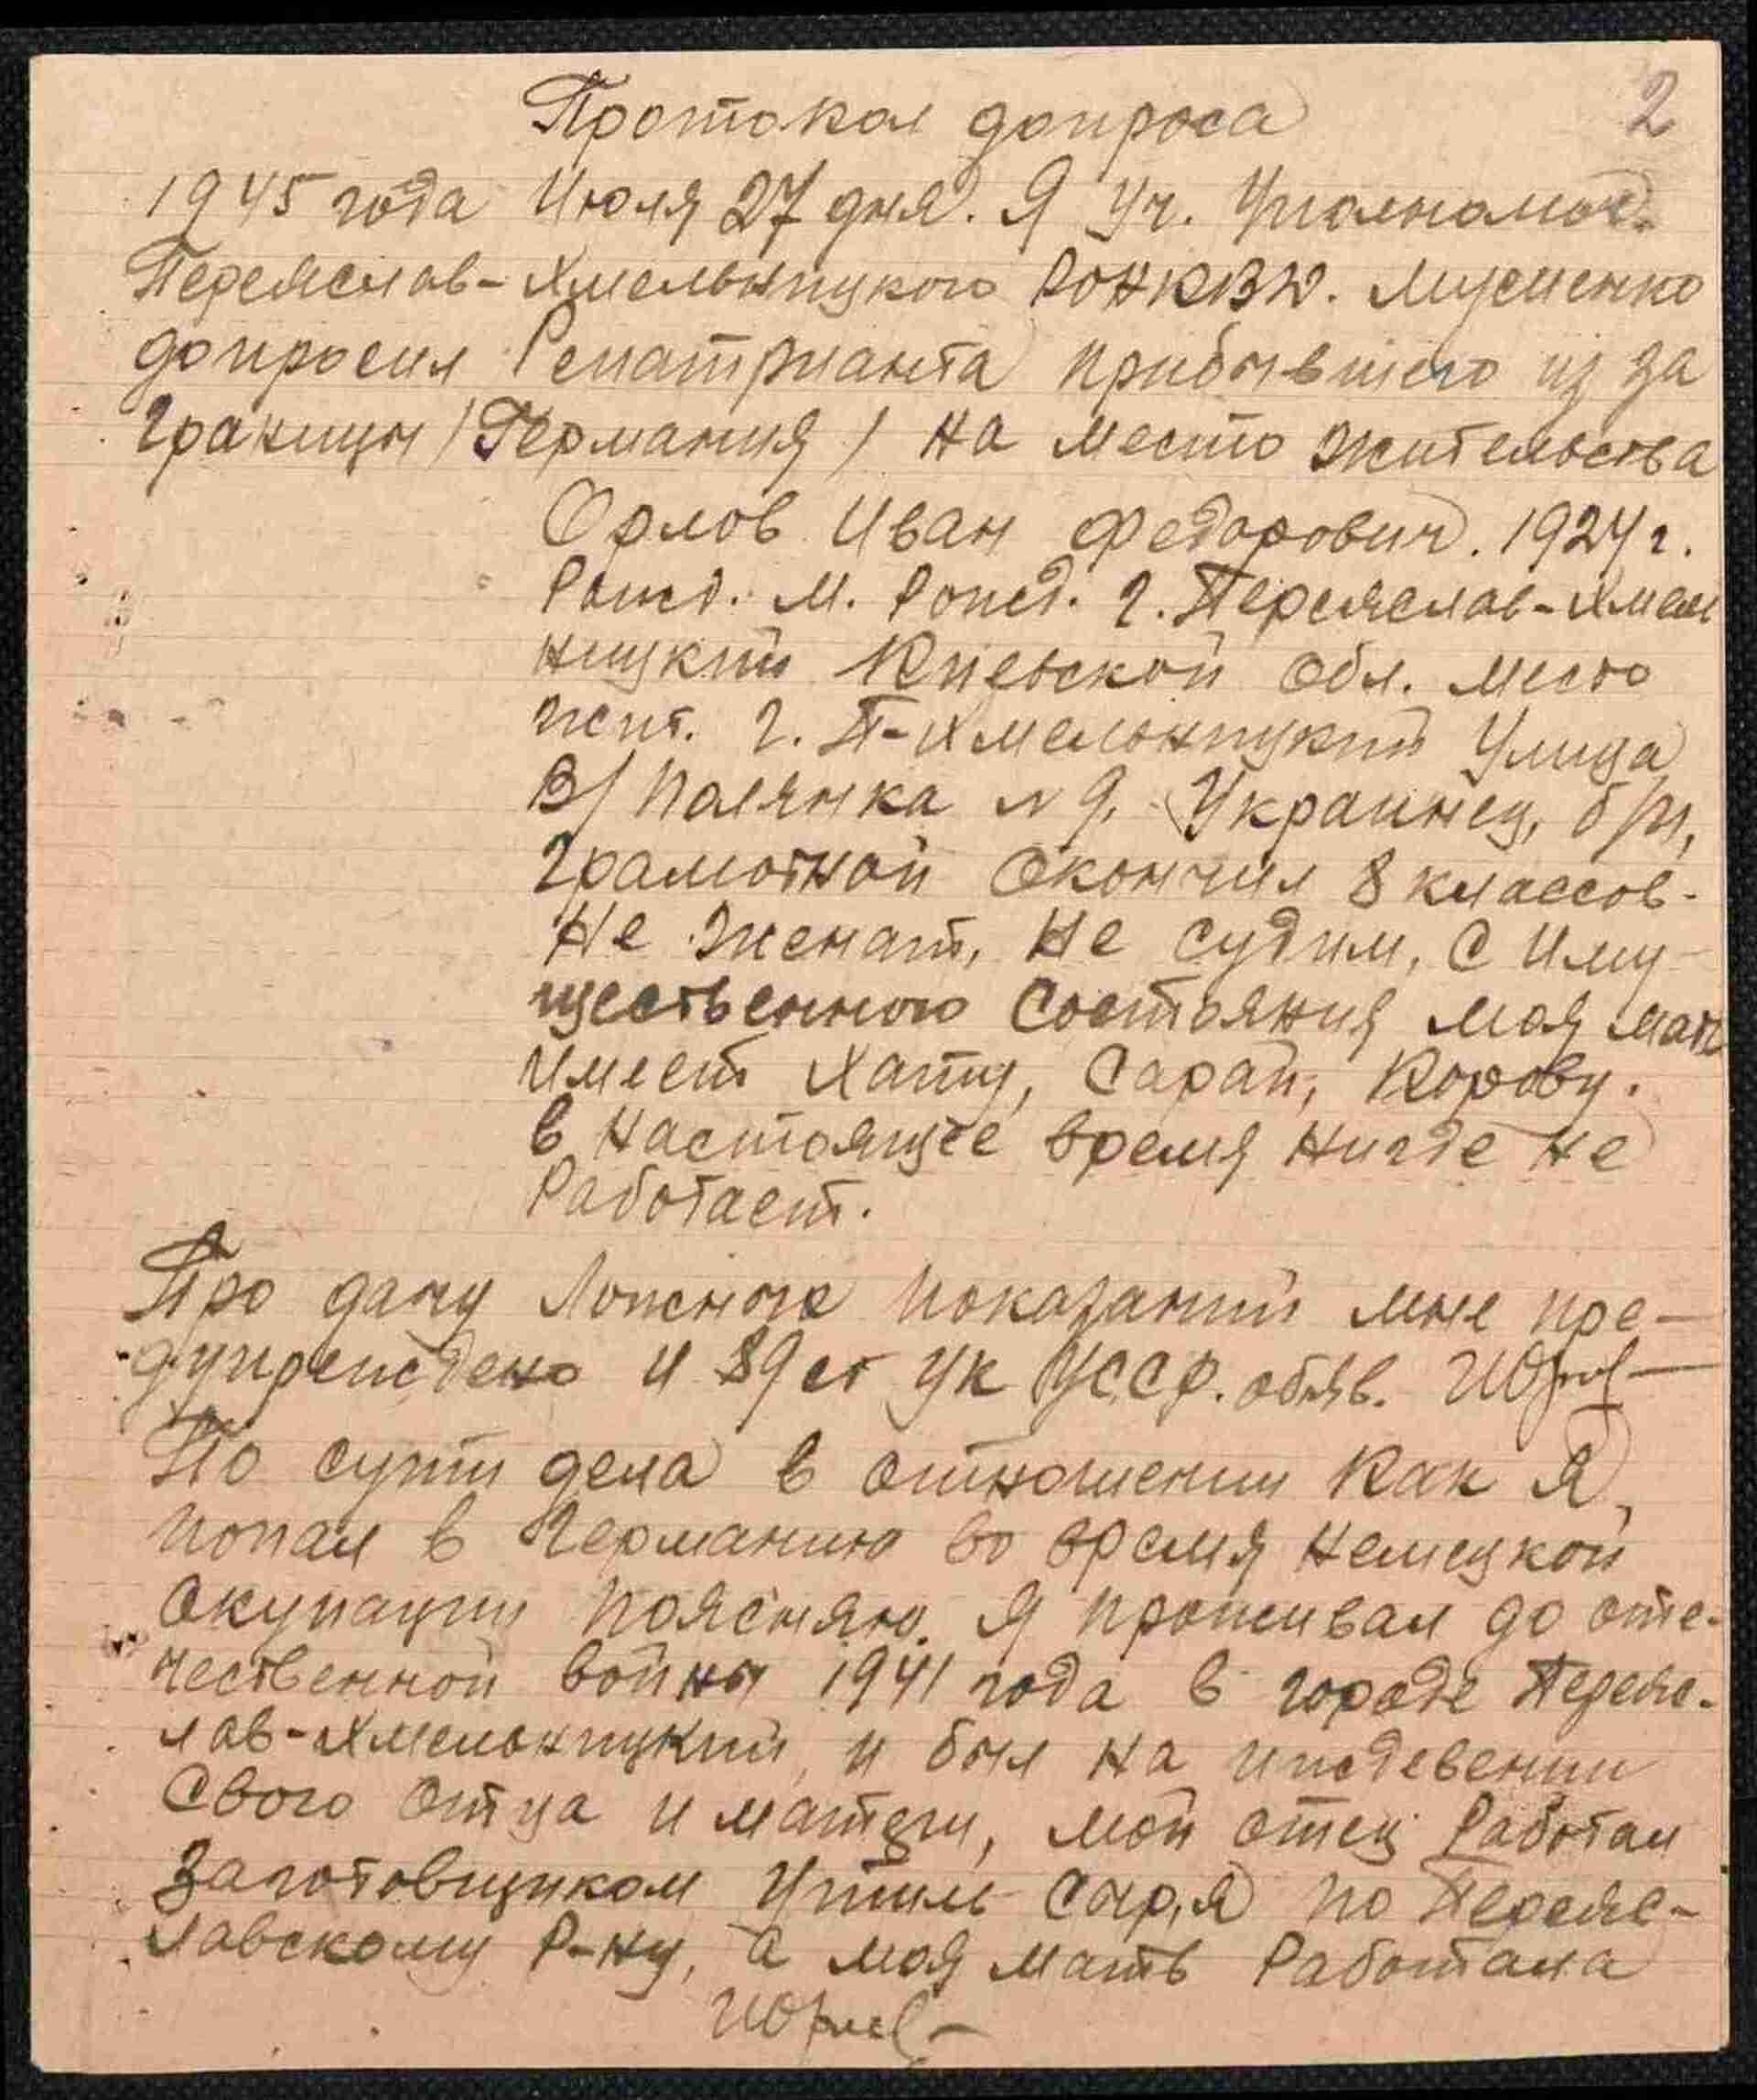 2
Протокол допроса
1945 года Июля 27 дня. Я Уч. Уполномоч.
Переяслав-Хмельныцкого РОНКВД. Мусиенко
допросил Репатрианта прибывшего из за
границы /Германия/ на место жительства
Орлов Иван Федорович. 1924 г.
Рожд. М. Рожд. г. Переяслав-Хмел
ницкий Киевской обл. место
жит. г. П-Хмельницкий Улица
В/Полянка № 9, Украинец, б/п,
Грамотной окончил 8 классов.
Не женат, не судим, с иму-
щественного состояния моя мать
имеет хату, сарай, корову.
в настоящее время нигде не
работает.
Про дачу ложных показаний мне пре-
дупреждено и 89 ст УК УССР. объяв. ИОрл
По сути дела в отношении как я
попал в Германию во время немецкой
окупации поясняю. Я проживал до оте-
чественной войны 1941 года в городе Переяс-
лав-Хмельницкий, и был на иждевении
свого отца и матери, мой отец работал
заготовщиком Утиль сыр,я по Переяс-
лавскому Р-ну, а моя мать работала
ИОрл